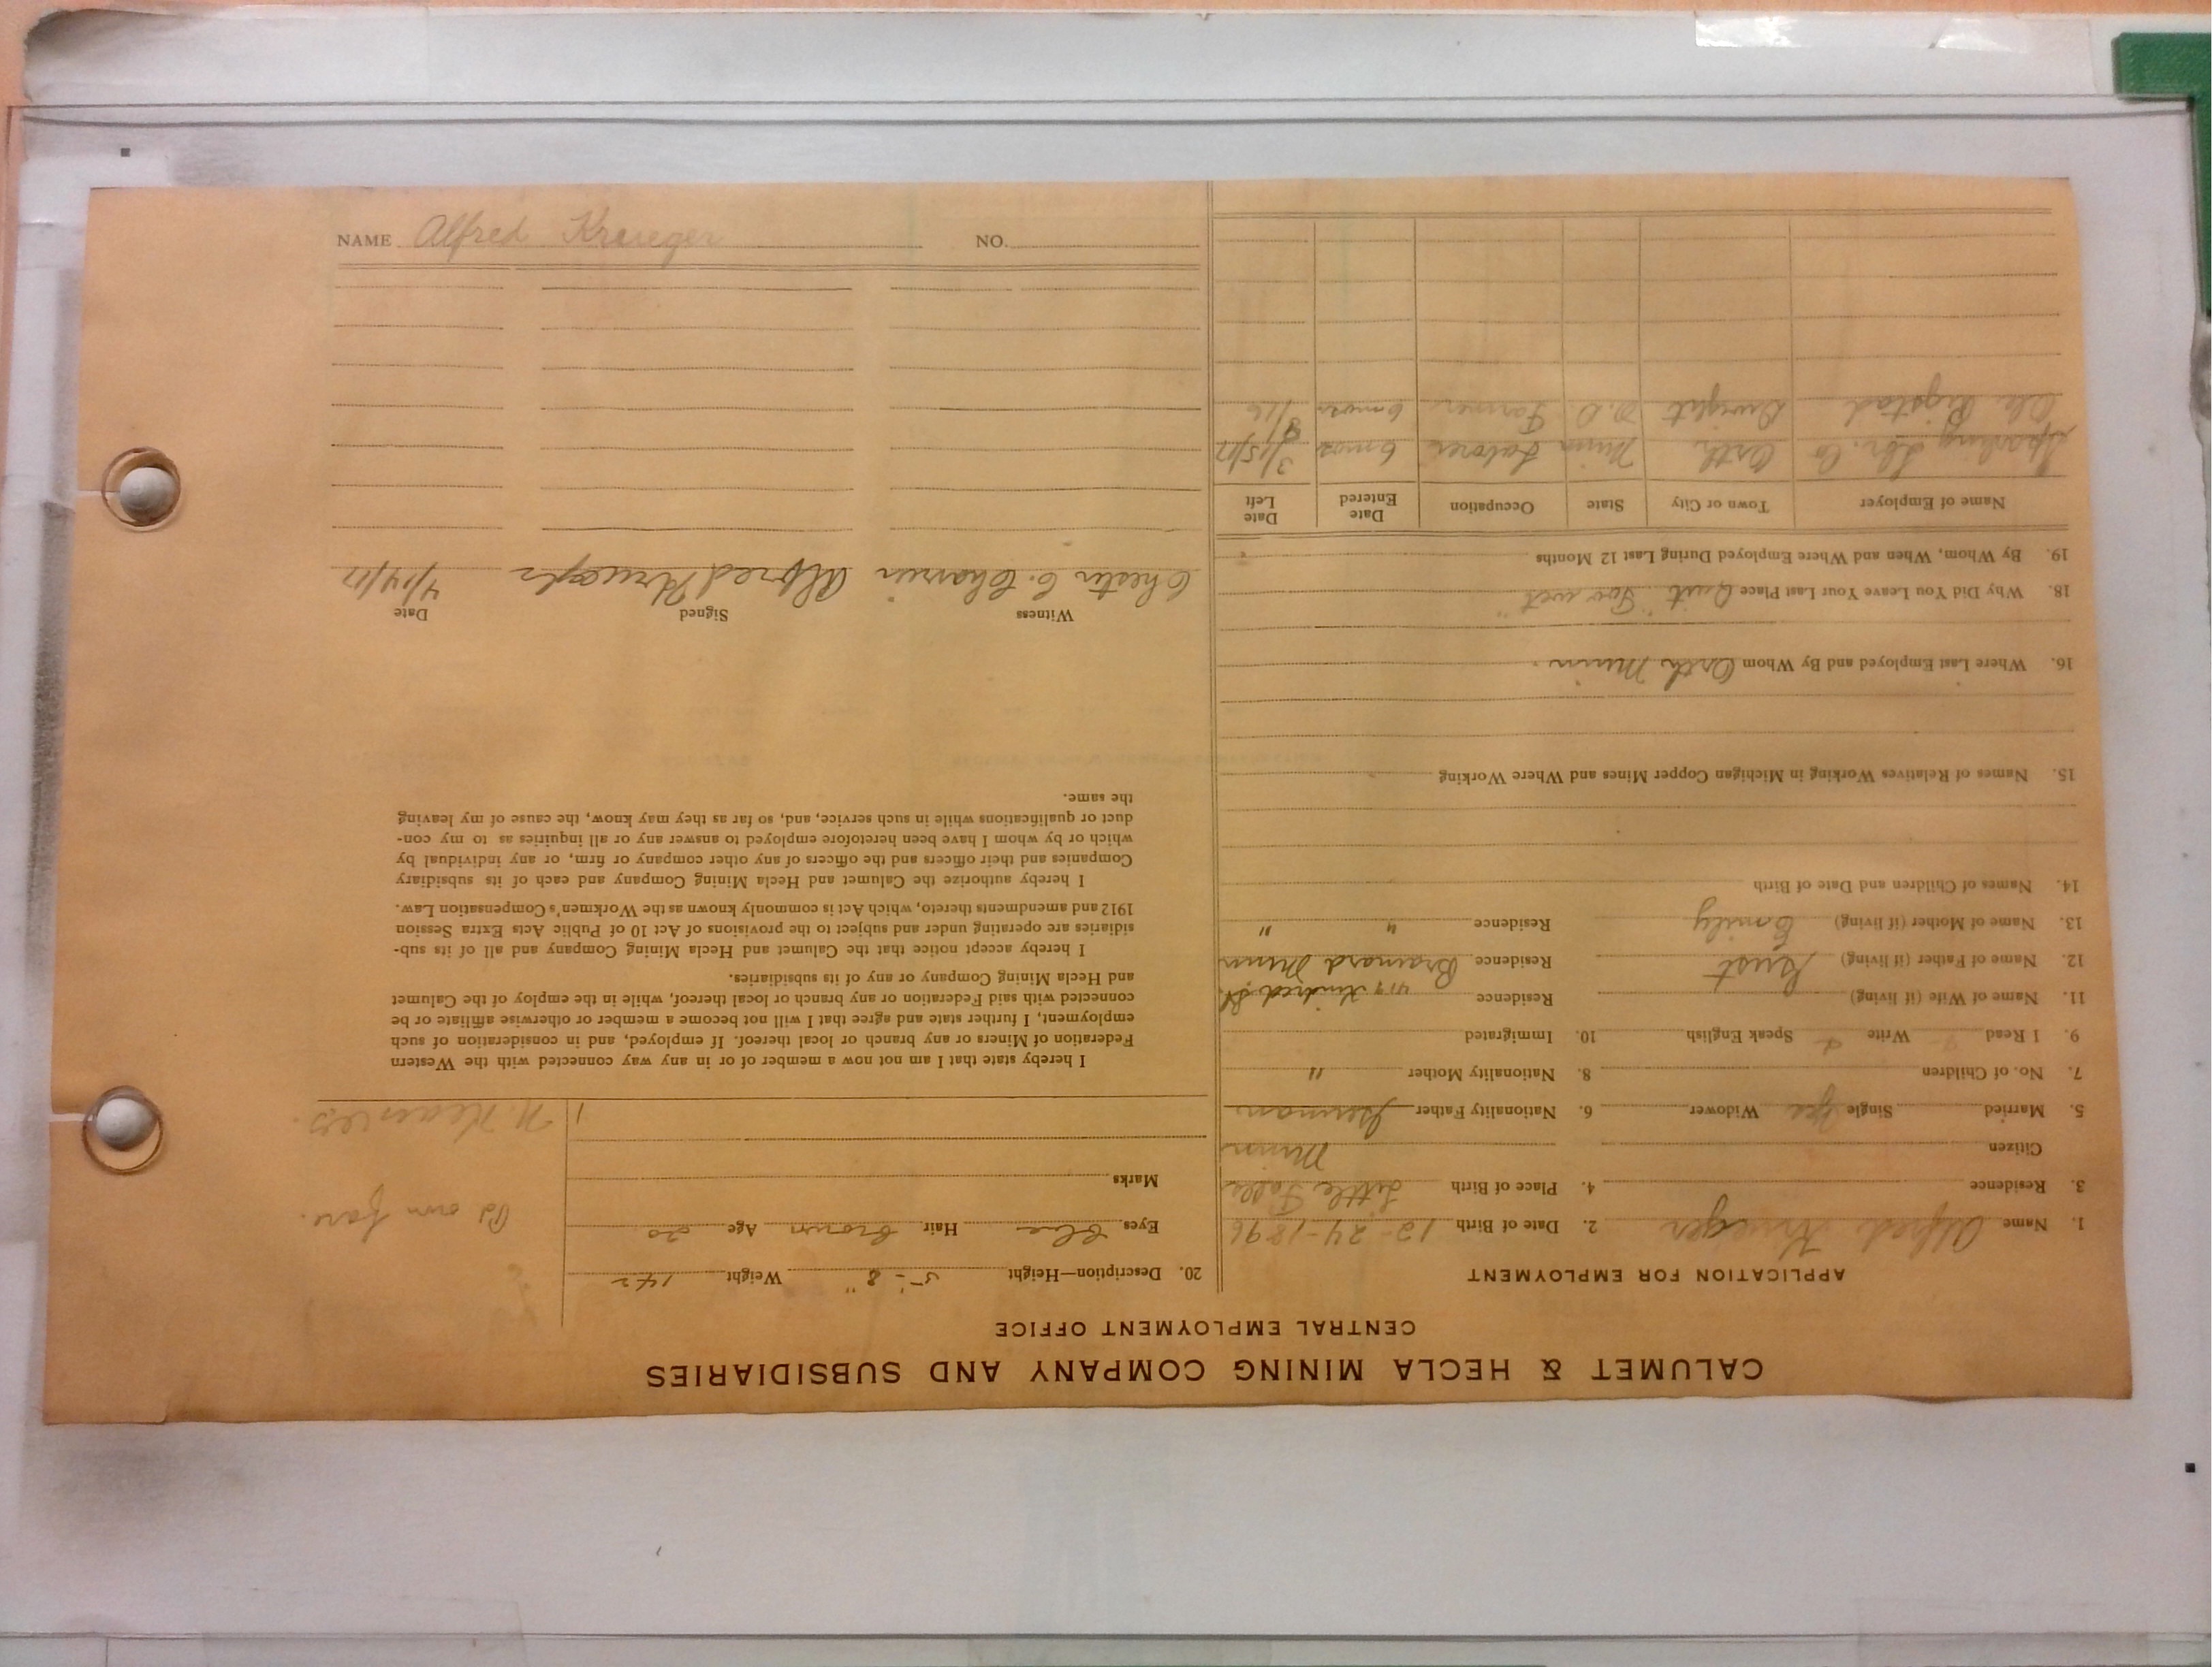 CALUMET & HECLA MINING COMPANY AND SUBSIDIARIES
CENTRAL EMPLOYMENT OFFICE
APPLICATION FOR EMPLOYMENT
1. Name Alfred Krueger 2. Date of Birth 12-24-1896
3. Residence 4. Place of Birth Little Falls
Citizen Minn
5. Married Single Yes Widower 6. Nationality Father German
7. No. of Children 8. Nationality Mother "
9. I Read Write Speak English 10. Immigrated
11. Name of Wife (if living) Residence 417 Kindred St.
12. Name of Father (if living) Gust Residence Brainard Minn
13. Name of Mother (if living) Emily Residence " "
14. Names of Children and Date of Birth
15. Names of Relatives Working in Michigan Copper Mines and Where Working
16. Where Last Employed and By Whom Orth Minn.
18. Why Did You Leave Your Last Place Quit "Too wet"
19. By Whom, When and Where Employed During Last 12 Months
Name of Employer Town or City State Occupation Date Entered Date Left
Lbr. Co Orth Minn Laborer 6 mos 3/15/17
Ole Rigstad Dwight N.D. Farmer 6 mos /16
20. Description—Height 5'-8" Weight 142
Eyes Blue Hair Brown Age 20
Marks
Pd own fare.
I hereby state that I am not now a member of or in any way connected with the Western
Federation of Miners or any branch or local thereof. If employed, and in consideration of such
employment, I further state and agree that I will not become a member or otherwise affiliate or be
connected with said Federation or any branch or local thereof, while in the employ of the Calumet
and Hecla Mining Company or any of its subsidiaries.
I hereby accept notice that the Calumet and Hecla Mining Company and all of its sub-
sidiaries are operating under and subject to the provisions of Act 10 of Public Acts Extra Session
1912 and amendments thereto, which Act is commonly known as the Workmen's Compensation Law.
I hereby authorize the Calumet and Hecla Mining Company and each of its subsidiary
Companies and their officers and the officers of any other company or firm, or any individual by
which or by whom I have been heretofore employed to answer any or all inquiries as to my con-
duct or qualifications while in such service, and, so far as they may know, the cause of my leaving
the same.
Witness Signed Date
Chester C. Alfred Krueger 4/14/17
NAME Alfred Krueger NO.